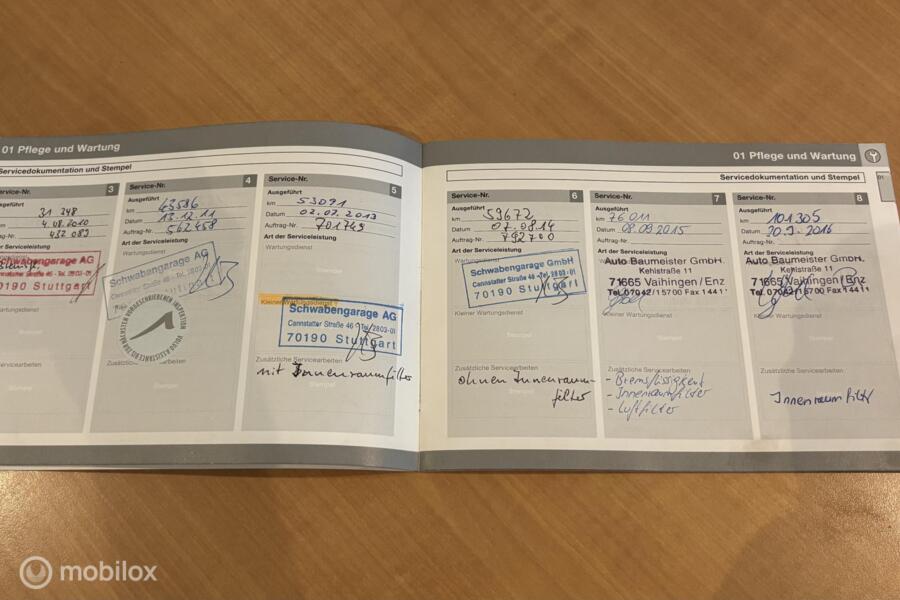 01 Pflege und Wartung
Servicedokumentation und Stempel
Service-Nr. 3
Ausgeführt
km 31 248
Datum 4.08.2010
Auftrag-Nr. 432 089
Art der Serviceleistung
Schwabengarage AG
Cannstatter Straße 46 · Tel. 2803-01
70190 Stuttgart
Zusätzliche Servicearbeiten
Service-Nr. 4
Ausgeführt
km 43586
Datum 13.12.11
Auftrag-Nr. 562458
Art der Serviceleistung
Wartungsdienst
Schwabengarage AG
Cannstatter Straße 46 · Tel. 2803-01
70190 Stuttgart
Zusätzliche Servicearbeiten
Stempel
Service-Nr. 5
Ausgeführt
km 53091
Datum 02.07.2013
Auftrag-Nr. 701749
Art der Serviceleistung
Wartungsdienst
Stempel
Kleiner Wartungsdienst
Schwabengarage AG
Cannstatter Straße 46 · Tel. 2803-01
70190 Stuttgart
Zusätzliche Servicearbeiten
mit Innenraumfilter
Stempel
01 Pflege und Wartung
Servicedokumentation und Stempel
01
Service-Nr. 6
Ausgeführt
km 59672
Datum 07.08.14
Auftrag-Nr. 792700
Art der Serviceleistung
Wartungsdienst
Schwabengarage GmbH
Cannstatter Straße 46 · Tel. 2803-01
70190 Stuttgart
Kleiner Wartungsdienst
Stempel
Zusätzliche Servicearbeiten
ohnen Innenraum-
filter
Service-Nr. 7
Ausgeführt
km 76011
Datum 08.09.2015
Auftrag-Nr.
Art der Serviceleistung
Auto Baumeister GmbH.
Kehlstraße 11
71665 Vaihingen/Enz
Tel. 07042/15700 Fax 14411
Kleiner Wartungsdienst
Stempel
Zusätzliche Servicearbeiten
- Bremsflüssigkeit
- Innenraumfilter
- Luftfilter
Service-Nr. 8
Ausgeführt
km 101305
Datum 20.9.2016
Auftrag-Nr.
Art der Serviceleistung
Auto Baumeister GmbH.
Kehlstraße 11
71665 Vaihingen/Enz
Tel. 07042/15700 Fax 14411
Kleiner Wartungsdienst
Stempel
Zusätzliche Servicearbeiten
Innenraumfilter
mobilox